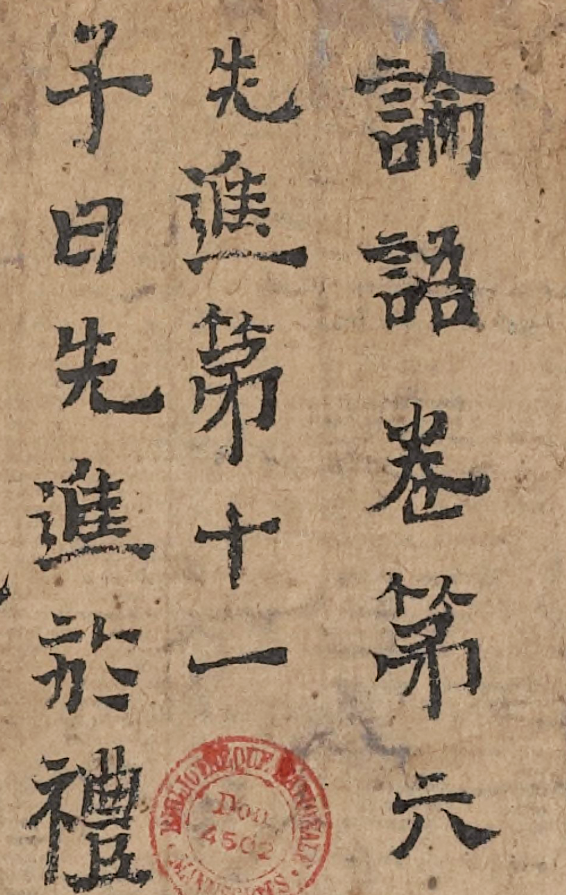 論語卷第六
先進第十一
子曰先進於禮
BIBLIOTHÈQUE NATIONALE
Don
4502
MANUSCRITS